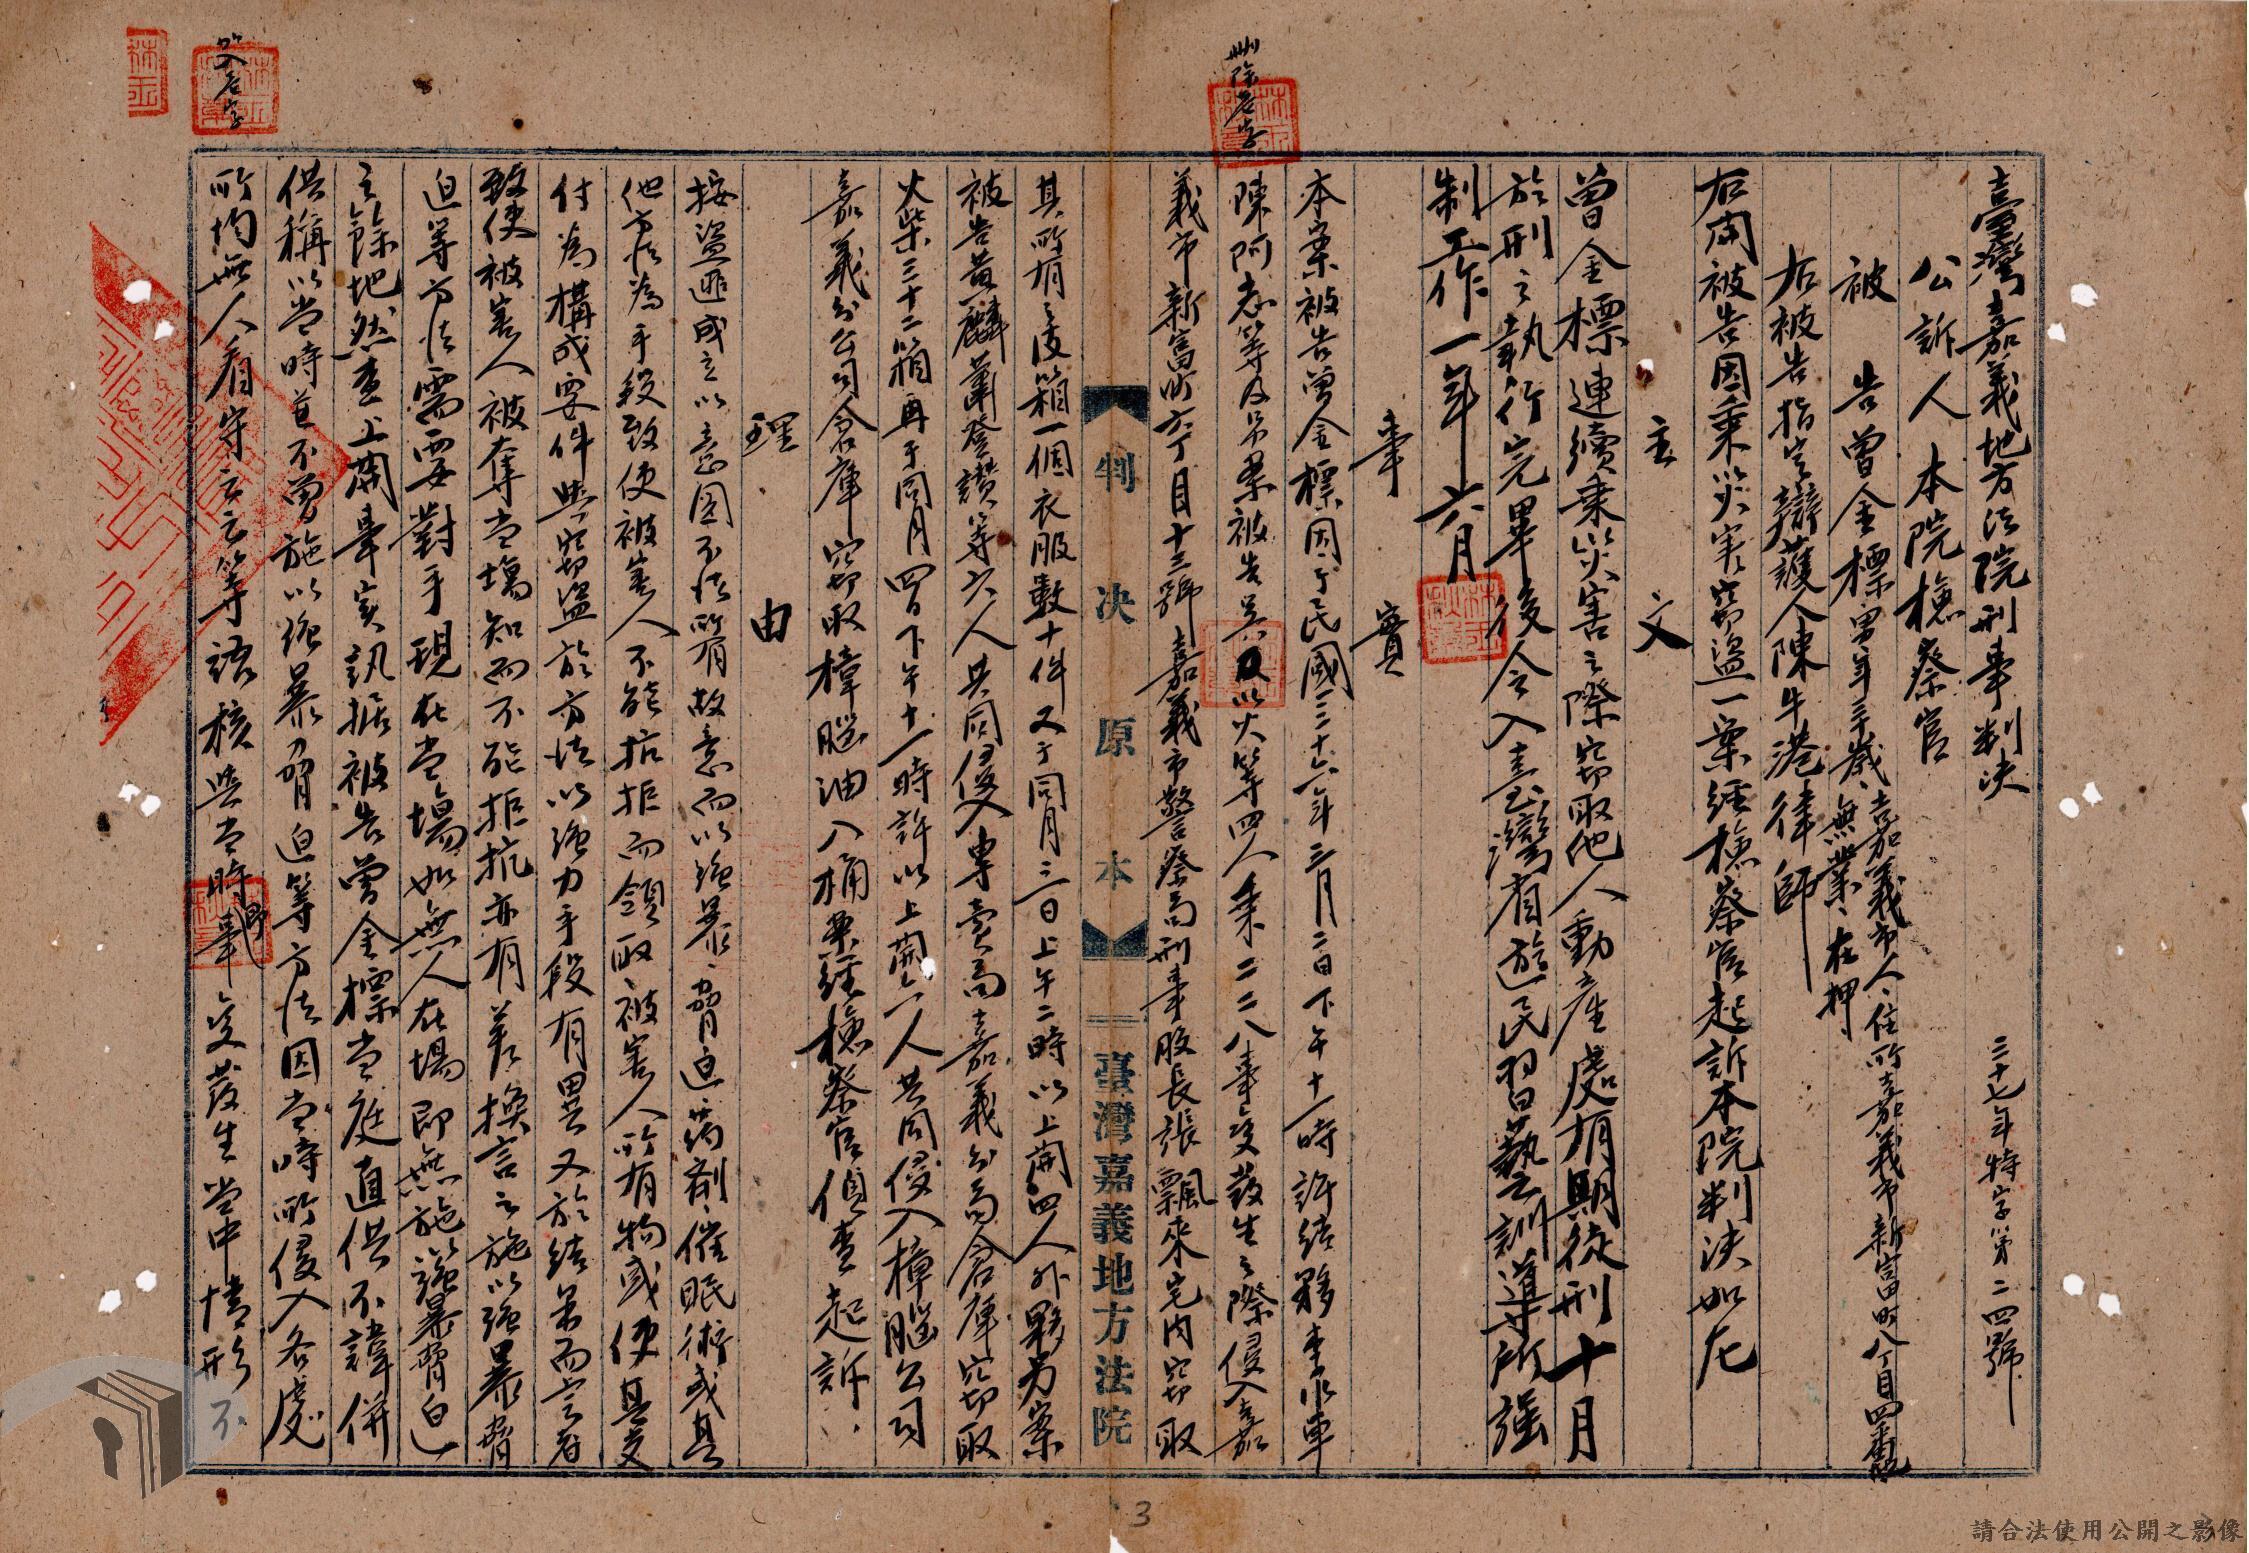 臺灣嘉義地方法院刑事判決
三十七年特字第二四號
公訴人本院檢察官
被告曾金標男年三歲、嘉義市人、住所嘉義市新富町八丁目四番
無業、在押
右被告指定辯護人陳牛港律師
右開被告因乘災害竊盜一案經檢察官起訴本院判決如左
主文
曾金標連續乘災害之際竊取他人動產處有期徒刑十月
於刑之執行完畢後令入臺灣省遊民習藝訓導所強
制工作一年六月
事實
本案被告曾金標因于民國三十六年三月二日下午十一時許結夥李水車
陳阿志等及另案被告吳以火等四人乘二二八事变發生之際侵入嘉
義市新富町六丁目十三號嘉義市警察局刑事股長張飄來宅內竊取
判决原本
臺灣嘉義地方法院
其所有之皮箱一個衣服數十件又于同月三日上午二時以上開四人外夥另案
被告黃麟蕭登讃等六人共同侵入專賣局嘉義分局倉庫竊取
火柴三十二箱再于同月四日下午十一時許以上開六人共同侵入樟腦公司
嘉義分公司倉庫竊取樟腦油入桶案經檢察官偵查起訴、
理由
按盜匪成立以意圖不法所有故意而以強暴、脅迫藥劑、催眠術或其
他方法為手段致使被害人不能抗拒而領取被害人所有物或使其交
付為構成要件與竊盜於方法以強力手段有異又於結果而言者
致使被害人被奪当場知而不能拒抗亦有差換言之施以強暴脅
迫等方法需要對手現在当場如無人在場即無施以強暴脅迫
之餘地然查上開事实訊据被告曾金標当庭直供不諱併
供稱以当時並不曾施以強暴脅迫等方法因当時所侵入各處
所均無人看守云云等語核與当時即事变發生当中情形不
删除右字
3
請合法使用公開之影像